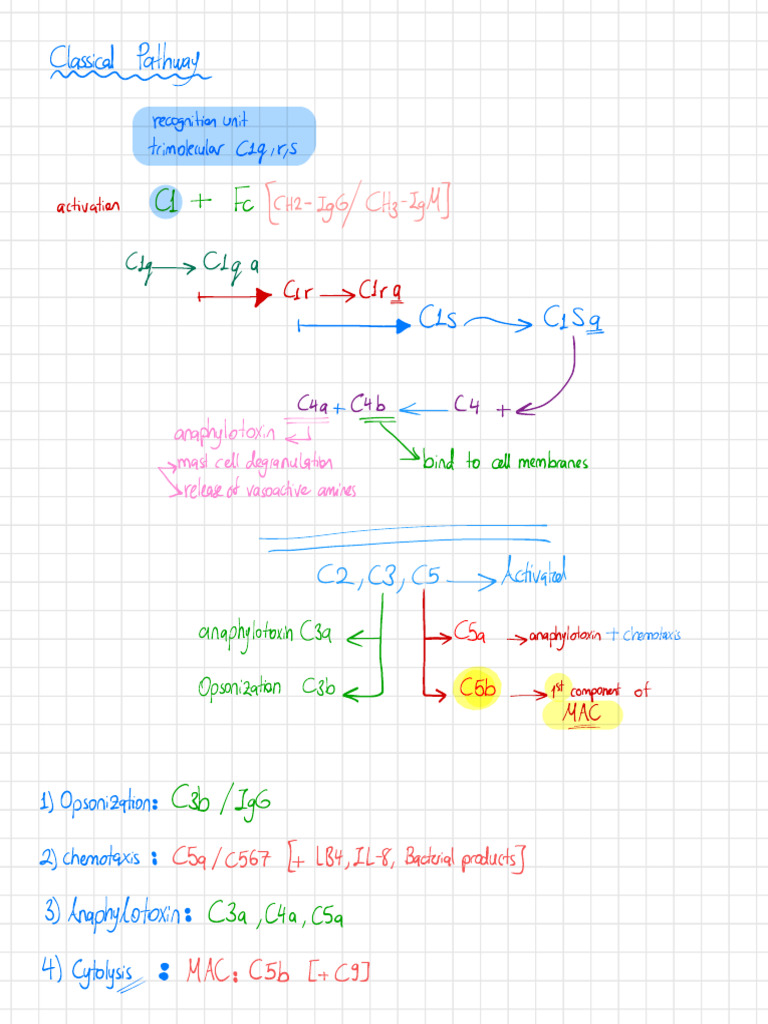 Classical Pathway
recognition unit
trimolecular C1q,r,s
activation C1 + Fc [CH2-IgG/CH3-IgM]
C1q → C1q a
C1r → C1r a
C1s → C1S a
C4a + C4b ← C4 +
anaphylotoxin
mast cell degranulation
bind to cell membranes
release of vasoactive amines
C2, C3, C5 → Activated
anaphylotoxin C3a
C5a → anaphylotoxin + chemotaxis
Opsonization C3b
C5b → 1st component of
MAC
1) Opsonization: C3b / IgG
2) chemotaxis: C5a / C567 [+ LB4, IL-8, Bacterial products]
3) Anaphylotoxin: C3a, C4a, C5a
4) Cytolysis: MAC: C5b [+C9]